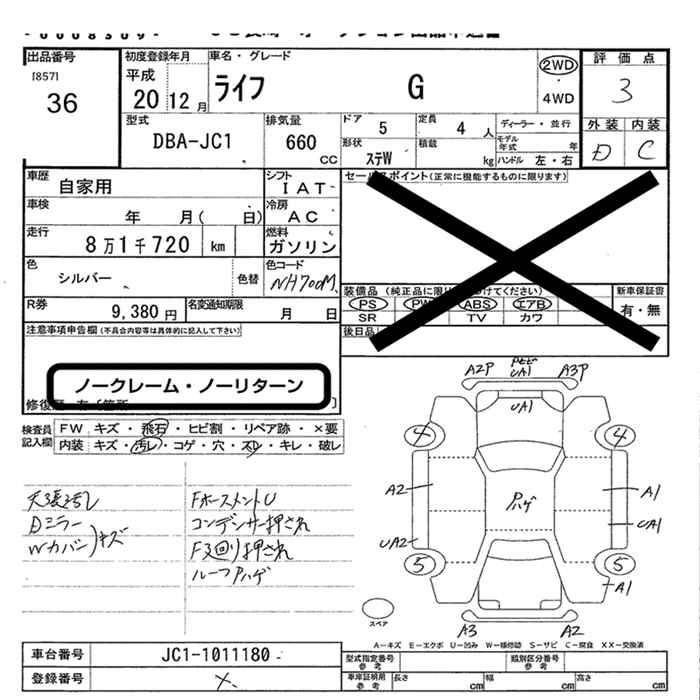 出品番号
[857]
36
初度登録年月
平成
20 12月
車名・グレード
ライフ G
2WD
4WD
評価点
3
外装 内装
D C
型式
DBA-JC1
排気量
660
CC
ドア 5
定員 4 人
形状 ステW
積載 kg
ディーラー・並行
モデル年式 年
ハンドル 左・右
車歴
自家用
シフト
I AT
車検
年 月( 日)
冷房
A C
走行
8万1千720 km
燃料
ガソリン
色
シルバー
色替
色コード
NH700M
R券
9,380円
名変通知期限
月 日
セールスポイント(正常に機能するものに限ります)
装備品
PS PW ABS エアB
SR TV カワ
新車保証書
有・無
後日品
注意事項申告欄(不具合内容等は具体的に記入して下さい)
ノークレーム・ノーリターン
検査員記入欄
FW キズ・飛石・ヒビ割・リペア跡・×要
内装 キズ・汚レ・コゲ・穴・スレ・キレ・破レ
天張汚レ
Dミラー
Wカバー)キズ
FホースメントU
コンデンサー押され
F又回り押され
ルーフPハゲ
A2P
UA1
A3P
UA1
4
4
A2
Pハゲ
A1
UA1
UA2
5
5
A1
A3
A2
スペア
A－キズ E－エクボ U－凹み W－補修跡 S－サビ C－腐食 XX－交換済
車台番号
JC1-1011180
登録番号
×
型式指定番号
参考
類別区分番号
参考
車庫証明用
参考
長さ cm
幅 cm
高さ cm